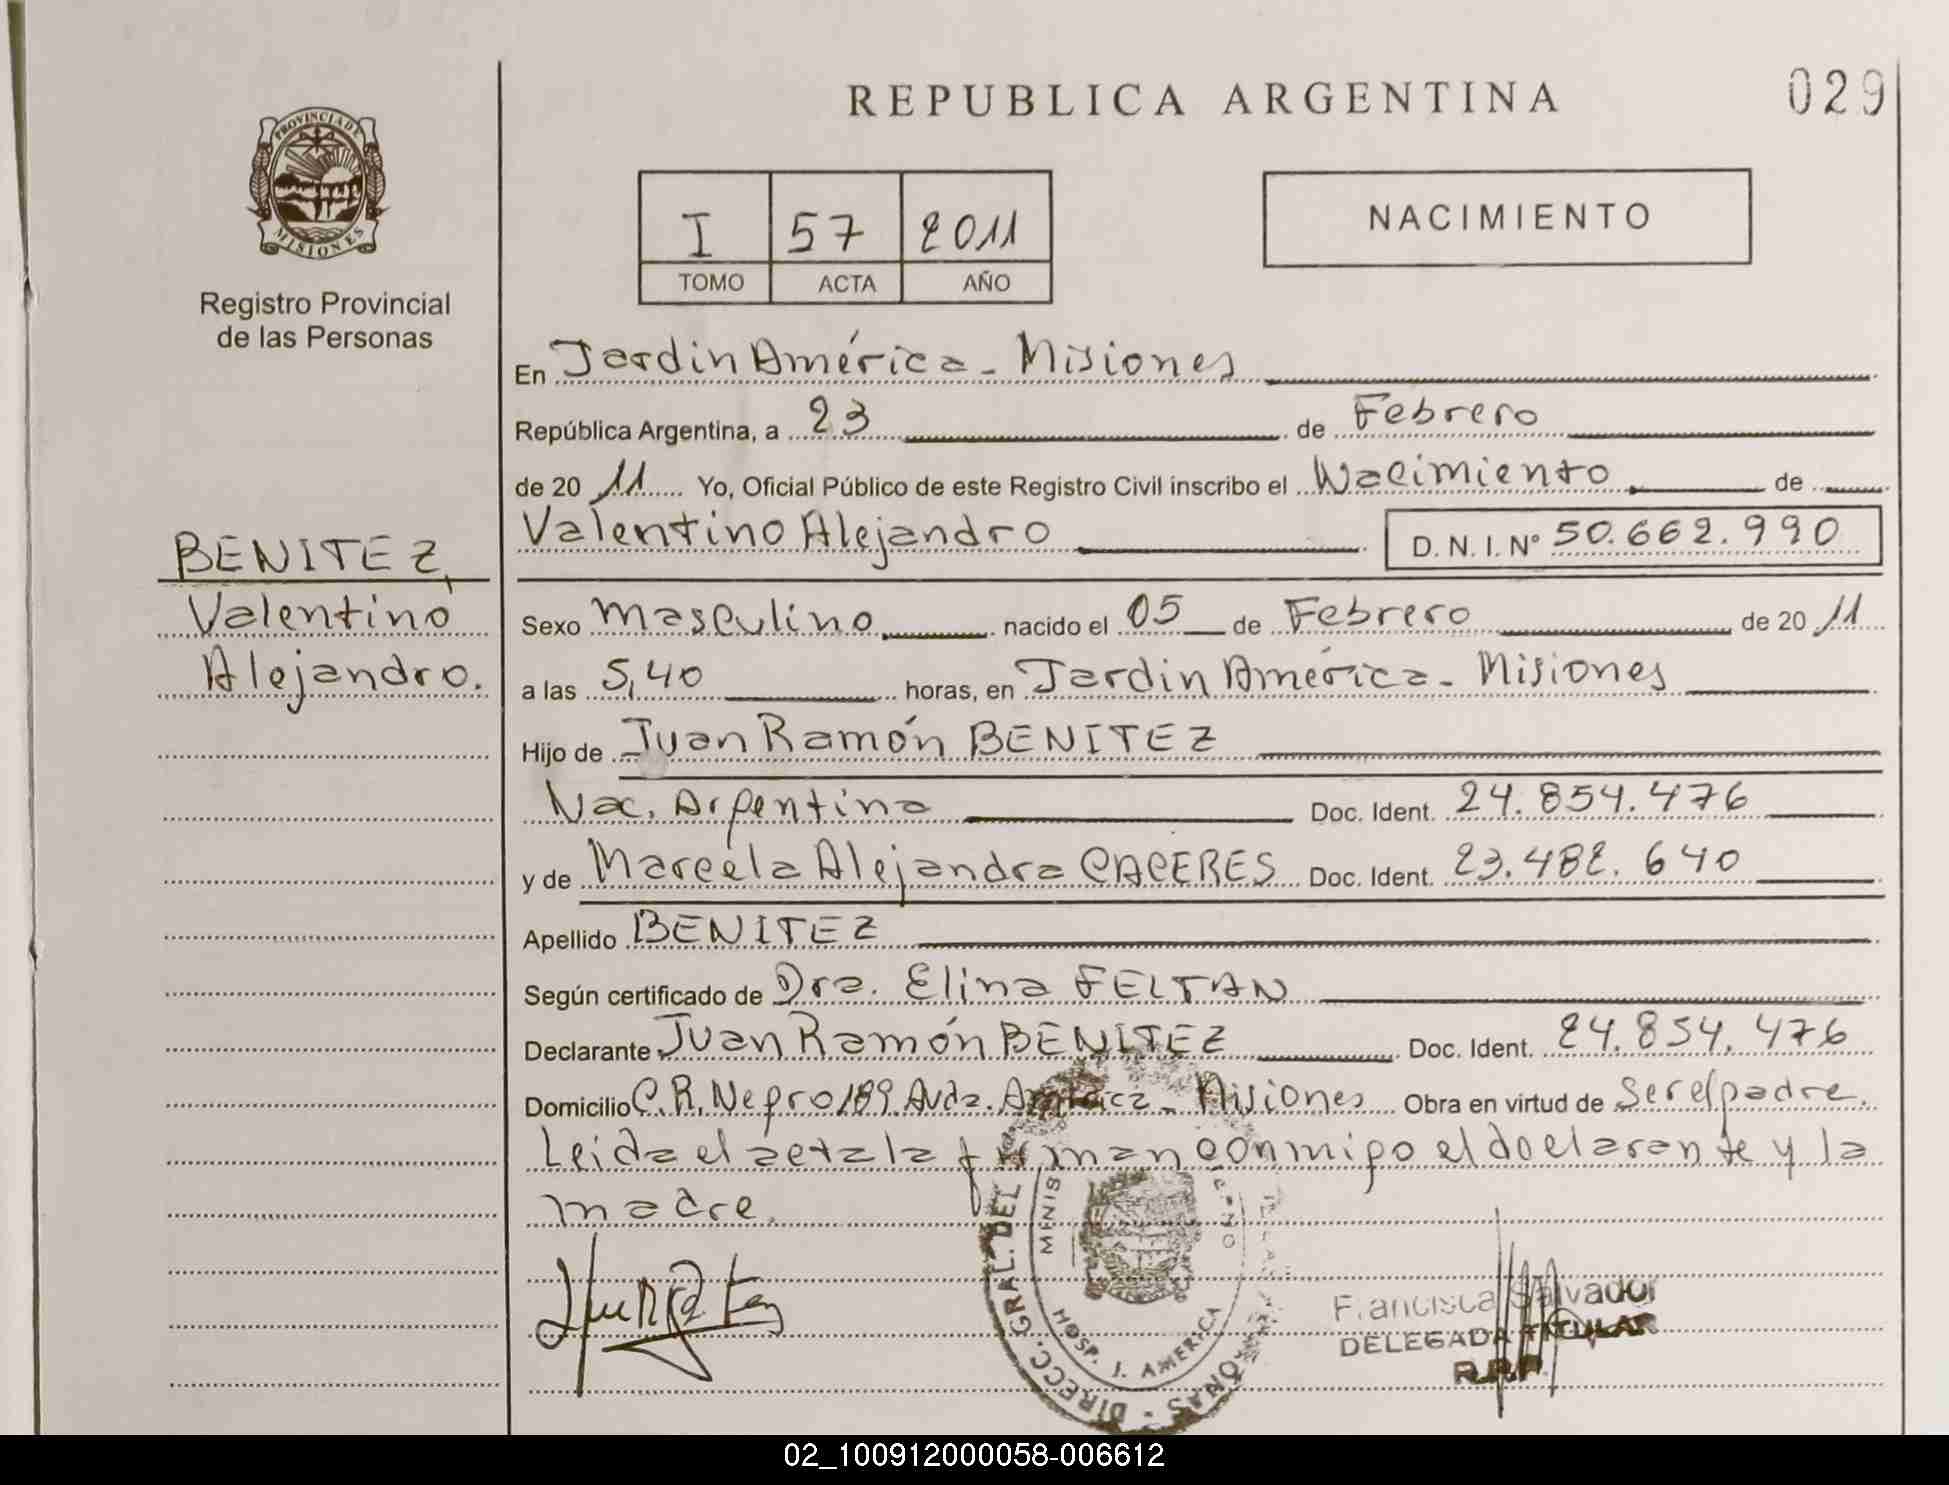 REPUBLICA ARGENTINA
029
PROVINCIA DE
MISIONES
Registro Provincial
de las Personas
I 57 2011
TOMO ACTA AÑO
NACIMIENTO
En Jardin América - Misiones
República Argentina, a 23 de Febrero
de 20 11 Yo, Oficial Público de este Registro Civil inscribo el Nacimiento de
Valentino Alejandro D. N. I. Nº 50.662.990
BENITEZ,
Valentino
Alejandro.
Sexo Masculino nacido el 05 de Febrero de 20 11
a las 5,40 horas, en Jardin América - Misiones
Hijo de Juan Ramón BENITEZ
Nac. Argentina Doc. Ident. 24.854.476
y de Marcela Alejandra CACERES Doc. Ident. 23.482.640
Apellido BENITEZ
Según certificado de Dra. Elina FELTAN
Declarante Juan Ramón BENITEZ Doc. Ident. 24.854.476
Domicilio C.R. Negro 189 Avda. América - Misiones Obra en virtud de Ser el padre.
Leida el acta la firman conmigo el declarante y la
madre.
DIRECC. GRAL. DEL
MINIS
HOSP. J. AMERICA
Francisca Salvador
DELEGADA TITULAR
R.P.P.
02_100912000058-006612